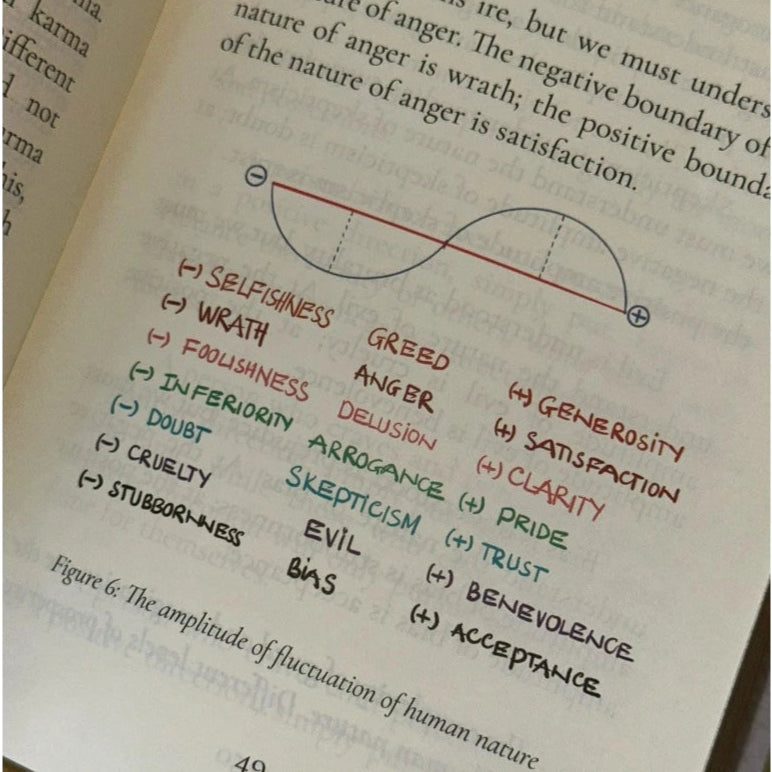 karma
different
not
his,
ire, but we must unders
of anger. The negative boundary of
nature of anger is wrath; the positive bounda
of the nature of anger is satisfaction.
(-) SELFISHNESS GREED (+) GENEROSITY
(-) WRATH ANGER (+) SATISFACTION
(-) FOOLISHNESS DELUSION (+) CLARITY
(-) INFERIORITY ARROGANCE (+) PRIDE
(-) DOUBT SKEPTICISM (+) TRUST
(-) CRUELTY EVIL (+) BENEVOLENCE
(-) STUBBORNNESS BIAS (+) ACCEPTANCE
Figure 6: The amplitude of fluctuation of human nature
49